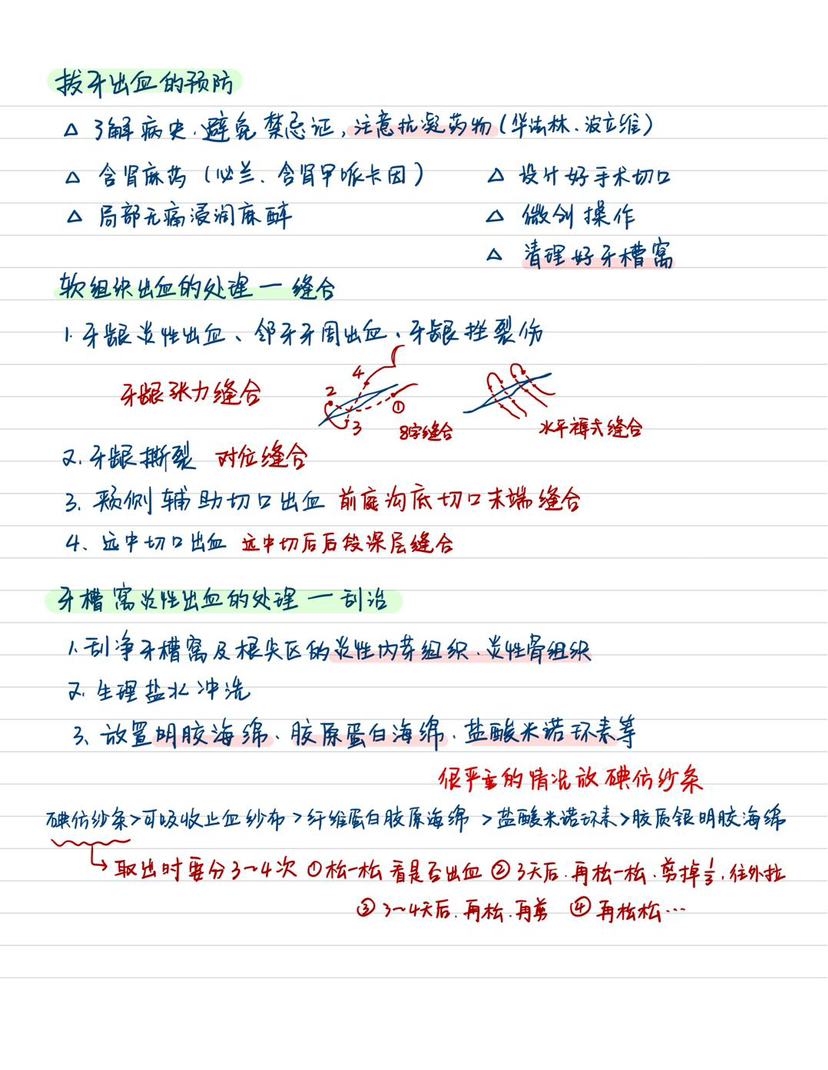 拔牙出血的预防
△ 了解病史、避免禁忌证，注意抗凝药物（华法林、波立维）
△ 含肾麻药（必兰、含肾甲哌卡因）
△ 设计好手术切口
△ 局部无痛浸润麻醉
△ 微创操作
△ 清理好牙槽窝
软组织出血的处理一缝合
1. 牙龈炎性出血、邻牙牙周出血、牙龈挫裂伤
牙龈张力缝合
2
4
3
①
8字缝合
水平褥式缝合
2. 牙龈撕裂 对位缝合
3. 颊侧辅助切口出血 前庭沟底切口末端缝合
4、远中切口出血 远中切后后段深层缝合
牙槽窝炎性出血的处理一刮治
1. 刮净牙槽窝及根尖区的炎性肉芽组织、炎性骨组织
2. 生理盐水冲洗
3、放置明胶海绵、胶原蛋白海绵、盐酸米诺环素等
很严重的情况放碘仿纱条
碘仿纱条>可吸收止血纱布>纤维蛋白胶原海绵>盐酸米诺环素>胶质银明胶海绵
取出时要分3~4次 ①松一松 看是否出血 ②3天后、再松一松、剪掉1/3，往外拉
③3~4天后、再松、再剪 ④再松松…